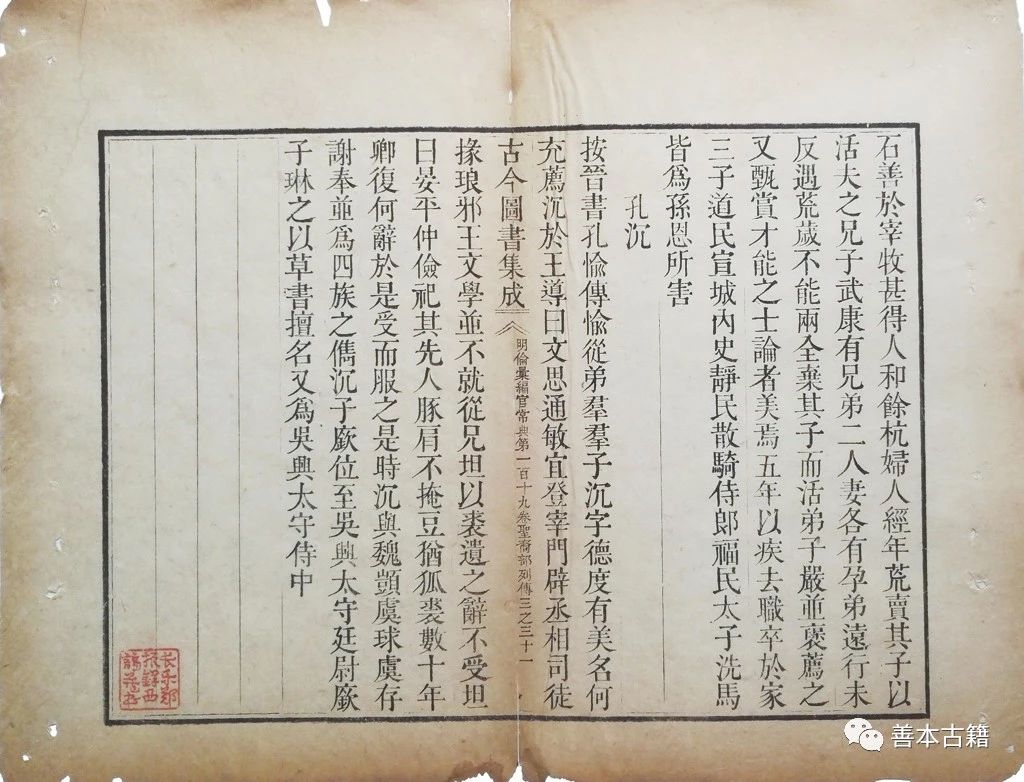 石善於宰牧甚得人和餘杭婦人經年荒賣其子以
活夫之兄子武康有兄弟二人妻各有孕弟遠行未
反遇荒歲不能兩全棄其子而活弟子嚴並褒薦之
又甄賞才能之士論者美焉五年以疾去職卒於家
三子道民宣城內史靜民散騎侍郎福民太子洗馬
皆為孫恩所害
孔沉
按晉書孔愉傳愉從弟羣羣子沉字德度有美名何
充薦沉於王導曰文思通敏宜登宰門辟丞相司徒
古今圖書集成
明倫彙編官常典第一百十九卷聖裔部列傳三之三十一
掾琅邪王文學並不就從兄坦以裘遺之辭不受坦
曰晏平仲儉祀其先人豚肩不掩豆猶狐裘數十年
卿復何辭於是受而服之是時沉與魏顗虞球虞存
謝奉並為四族之儁沉子廞位至吳興太守廷尉廞
子琳之以草書擅名又為吳興太守侍中
长乐郑
振铎西
諦藏书
善本古籍